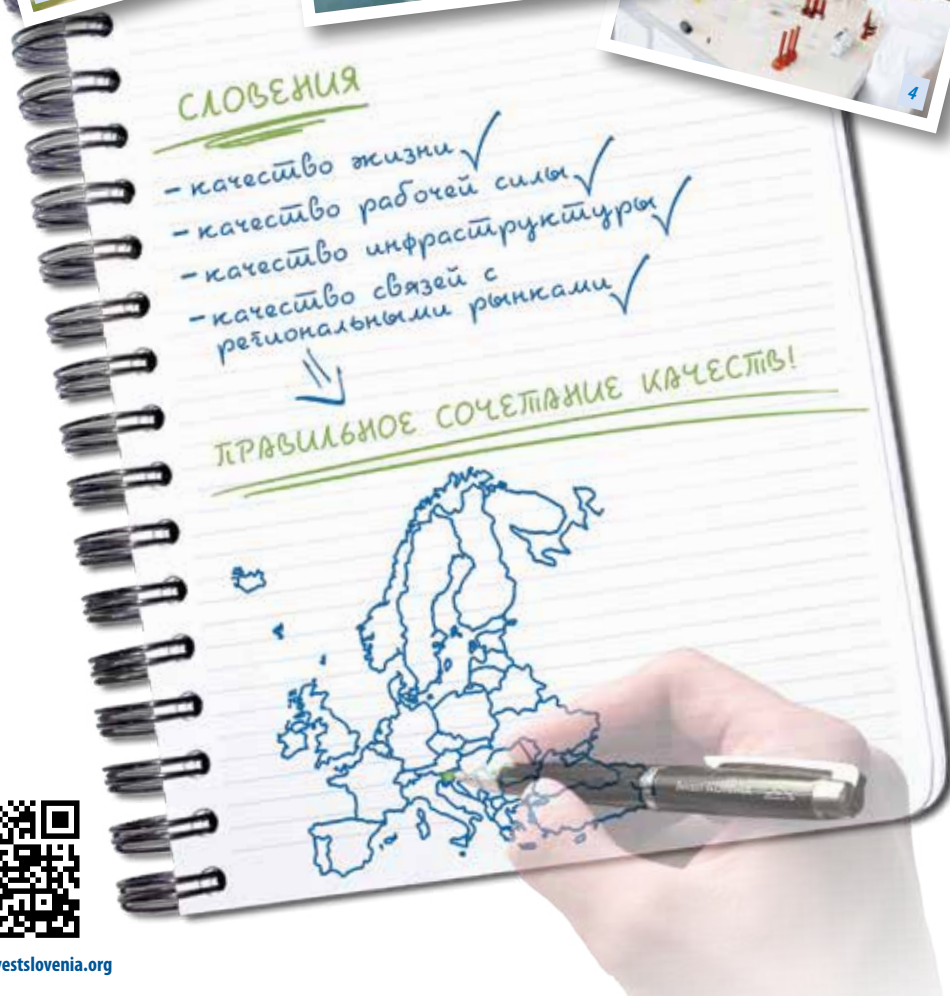 4
СЛОВЕНИЯ
- качество жизни ✓
- качество рабочей силы ✓
- качество инфраструктуры ✓
- качество связей с
региональными рынками ✓
ПРАВИЛЬНОЕ СОЧЕТАНИЕ КАЧЕСТВ!
vestslovenia.org